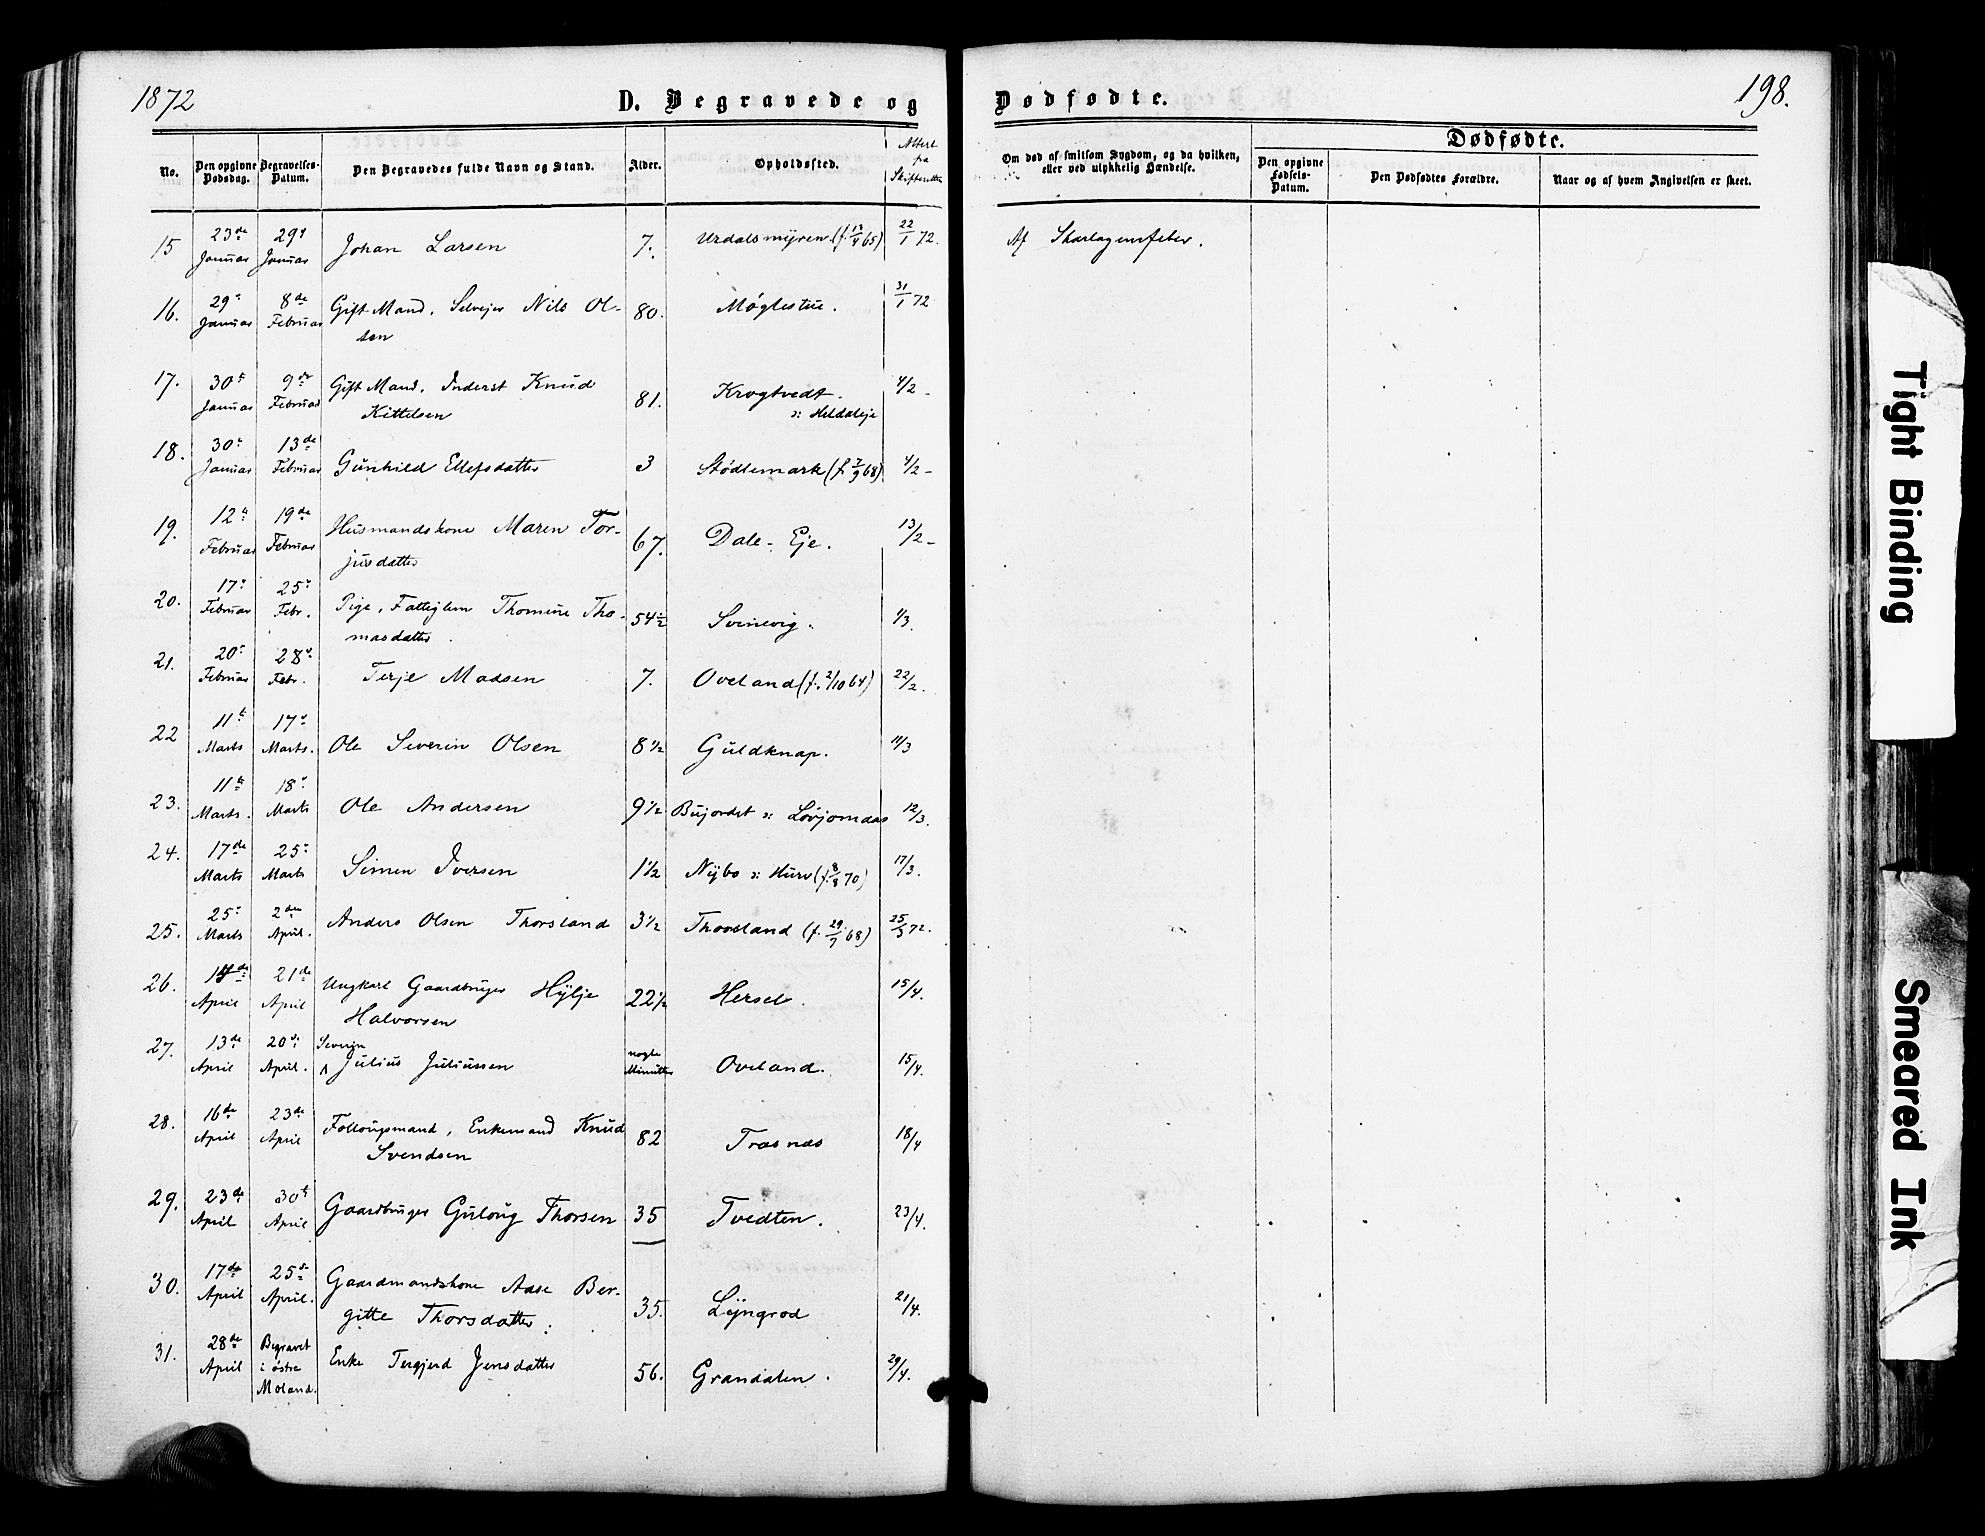 1872
D. Begravede og Dødfødte.
198.
No.
Den opgivne Dødsdag.
Begravelses-Datum.
Den Begravedes fulde Navn og Stand.
Alder.
Opholdssted.
Attest fra Skifteretten
Om død af smitsom Sygdom, og da hvilken, eller ved ulykkelig Hændelse.
Dødfødte.
Den opgivne Fødsels-Datum.
Den Dødfødtes Forældre.
Naar og af hvem Angivelsen er skeet.
15 23de Januar 29de Januar Johan Larsen 7. Urdalsmyren 22/1 72. Af Skarlagensfeber.
16. 29de Januar 8de Februar Gift Mand, Selvejer Nils Ol-
sen 80. Møglestue. 31/1 72
17. 30te Januar 9de Februar Gift Mand, Inderst Knud
Kittelsen 81. Krogtvedt. 4/2 -
18. 30te Januar 13de Februar Gunhild Ellefsdatter 3 Stødlemark (f. 7/9 68) 4/2 -
19. 12te Februar 19de Februar Husmandskone Maren Tor-
jusdatter 67. Dale-Eje. 13/2 -
20. 17de Februar 25de Febr. Pige, Fattiglem Thomine Tho-
masdatter. 54½ Svinevig. 1/3.
21. 20de Februar 28de Febr. Terje Madsen 7. Oveland (f. 2/10 64) 22/2.
22 11te Marts 17de Marts. Ole Severin Olsen 8½ Guldknap. 11/3
23. 11te Marts. 18de Marts Ole Andersen 9½ Bujordet 12/3.
24. 17de Marts 25de Marts Simen Iversen 1½ Nybo 17/3.
25. 25de Marts 2den April. Anders Olsen Thorsland 3½ Thorsland (f. 29/7 68) 25/3 72.
26. April 21de April Ungkarl Gaardbruger Hylje
Halvorsen 22½ Hersel. 15/4.
27. 13de April 20de April. Severin
Julius Juliussen nogle Minutter Oveland. 15/4.
28. 16de April 23de April Følougsmand, Enkemand Knud
Svendsen 82 Træsnæs 18/4
29. 23de April 30te April Gaardbruger Guloug Thorsen 35 Tvedten. 23/4.
30. 17de April 25de April. Gaardmandskone Aase Ber-
gitte Thorsdatter. 35. Lyngrod 21/4.
31. 28de April Begravet i østre Moland. Enke Tergjerd Jensdatter 56. Grandalen. 29/4.
Tight Binding
Smeared Ink